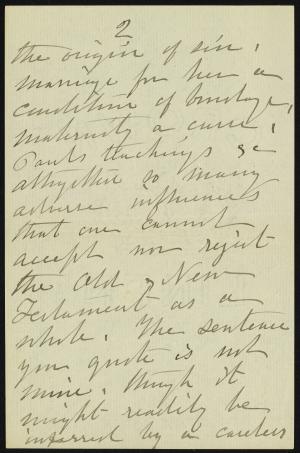 2
the origin of sin,
marriage for her a
condition of bondage,
maternity a curse,
Pauls teachings &c
altogether so many
adverse influences
that one cannot
accept nor reject
the Old & New
Testament as a
whole. The sentence
you quote is not
mine, though it
might readily be
inferred by a careless